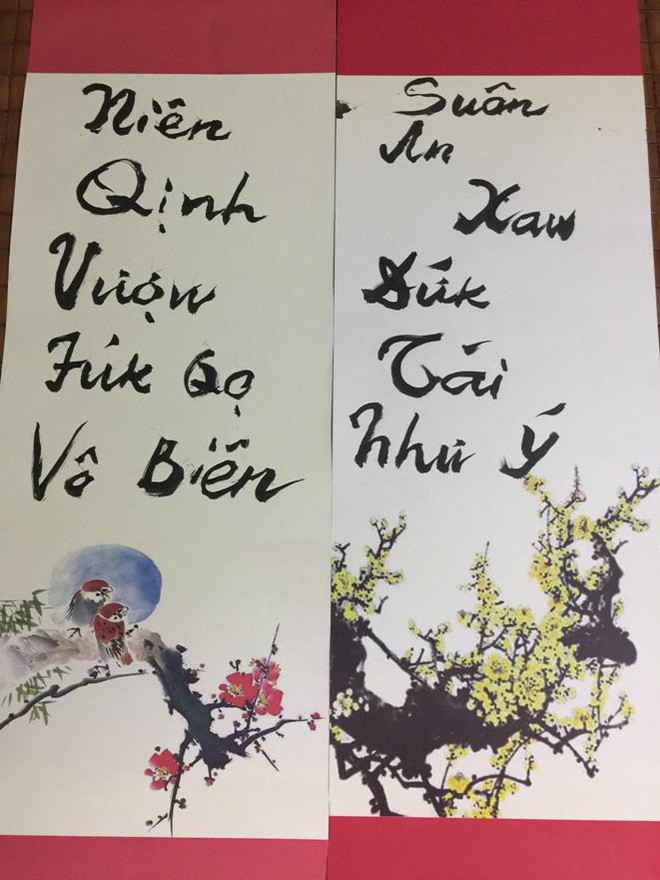 Niên
Qịnh
Vượw
Fúk Qọ
Vô Biên
Suân
An
Xaw
Dúk
Tài
Như Ý